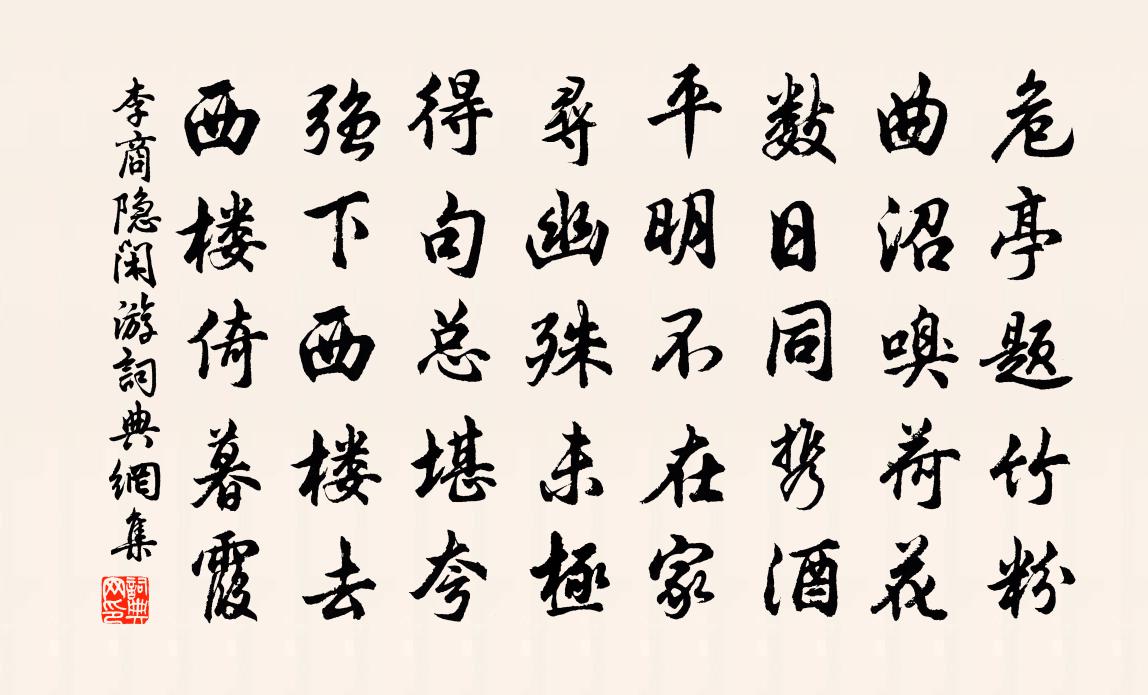 危亭题竹粉
曲沼嗅荷花
数日同携酒
平明不在家
寻幽殊未极
得句总堪夸
强下西楼去
西楼倚暮霞
李商隐闲游詞典網集
詞典网印